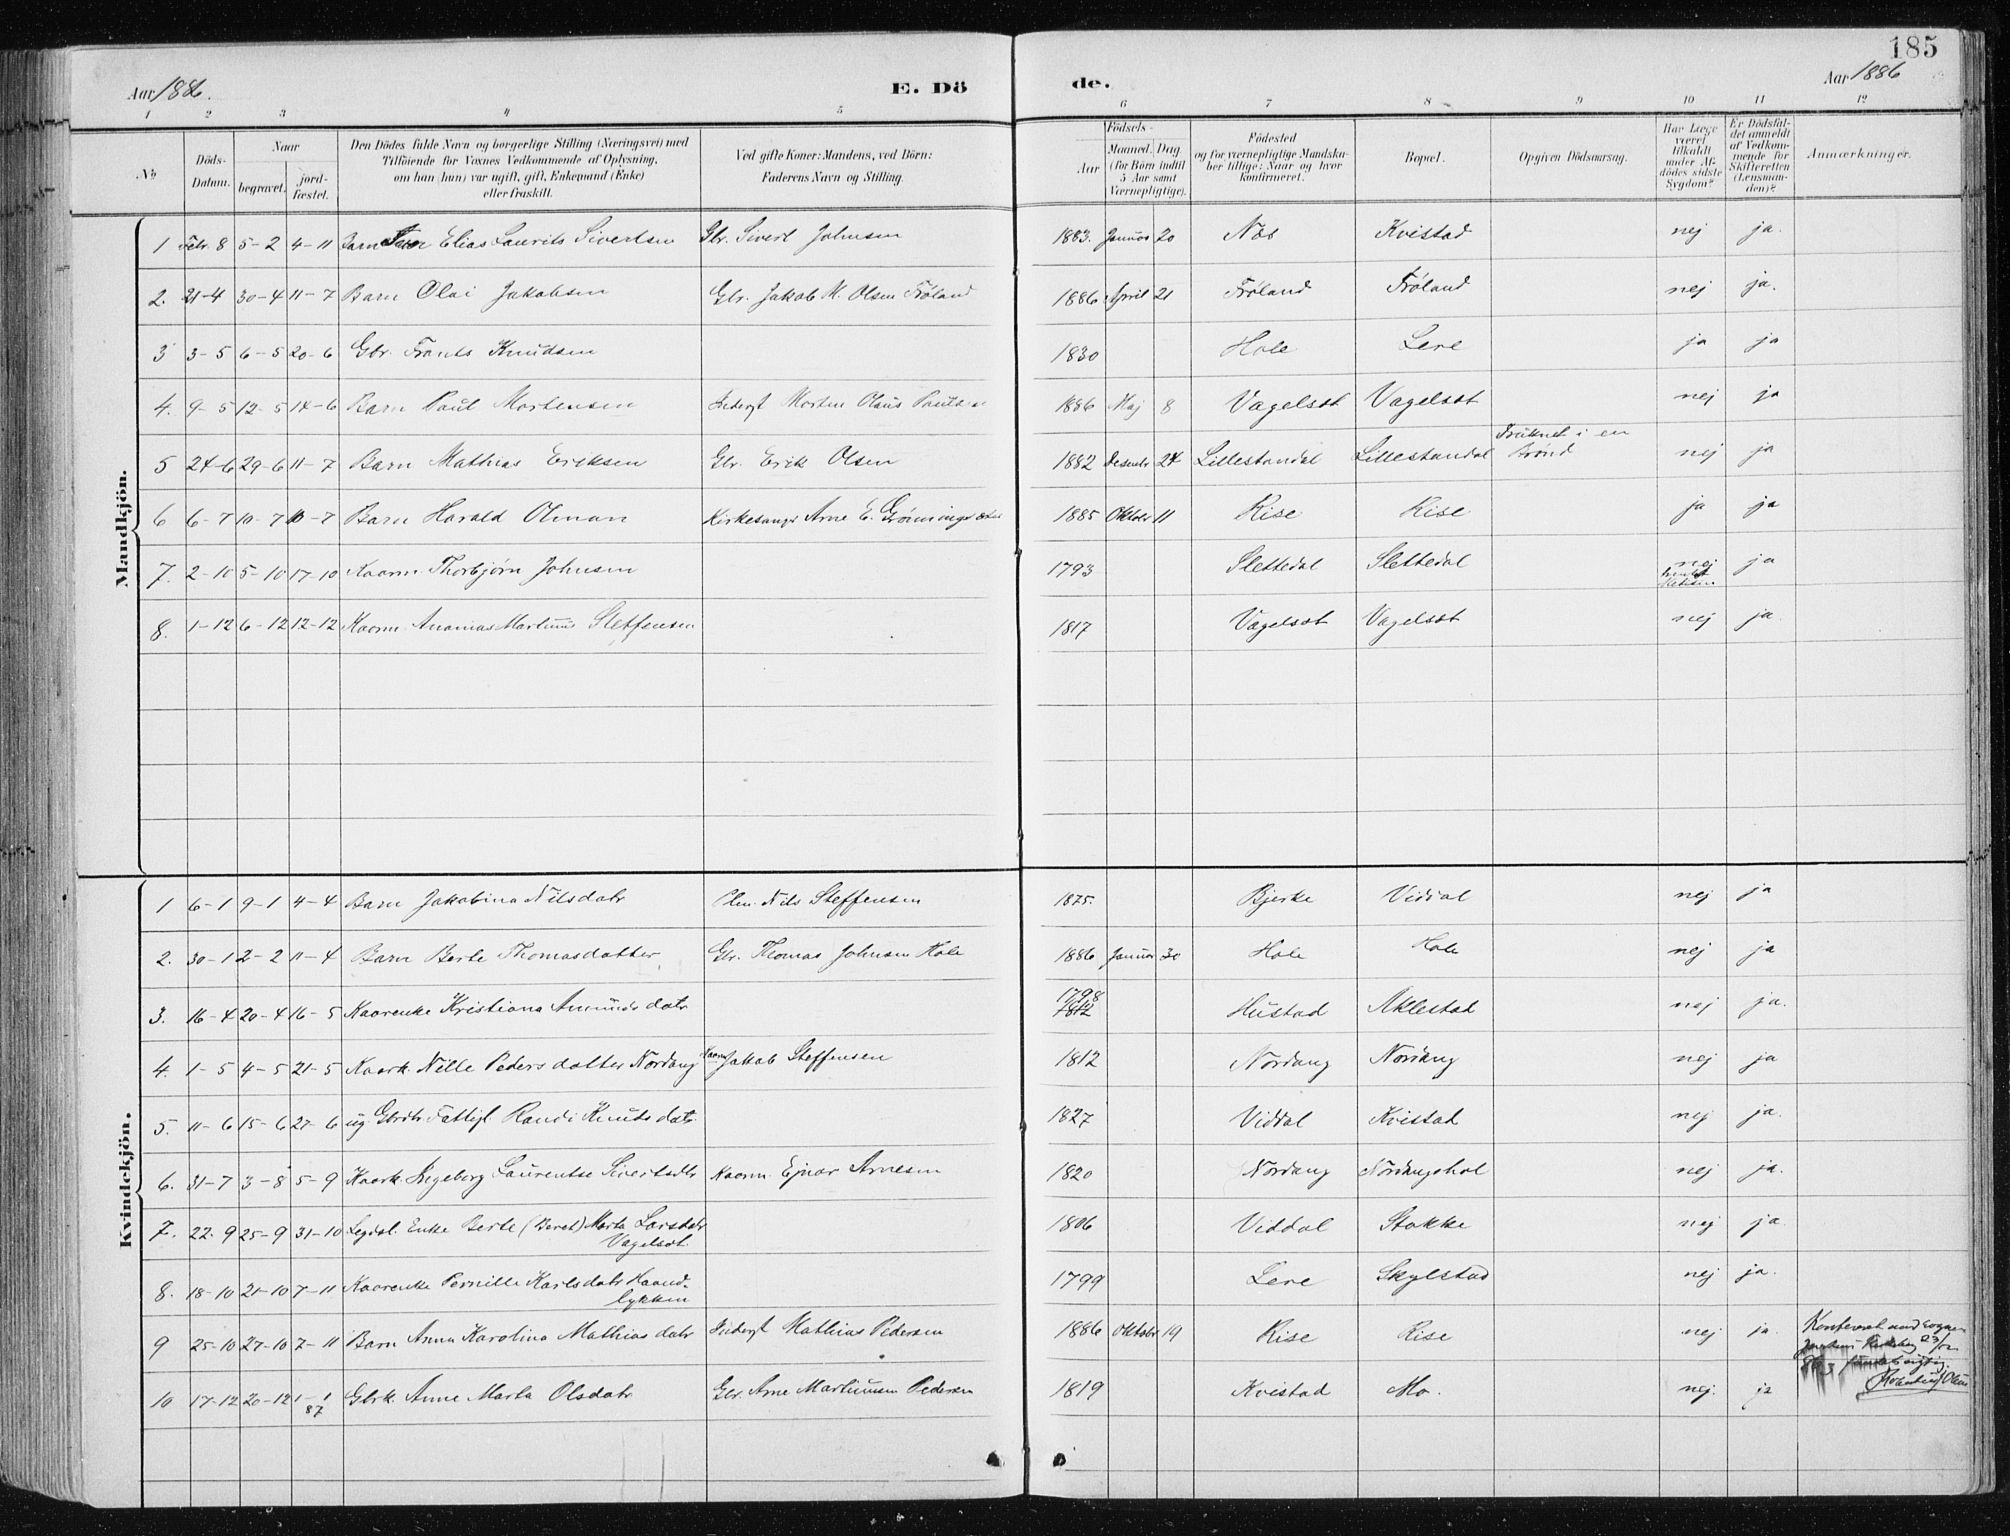 185
Aar 1886.
E. Dö
de.
Aar 1886
1 2 3 4 5 6 7 8 9 10 11 12
No
Döds-Datum.
Naar
begravet.
jord-fæstet.
Den Dödes fulde Navn og borgerlige Stilling (Næringsvei) med
Tilföiende for Voxnes Vedkommende af Oplysning,
om han (hun) var ugift, gift, Enkemand (Enke)
eller fraskilt.
Ved gifte Koner: Mandens, ved Börn:
Faderens Navn og Stilling.
Födsels-
Aar
Maaned. Dag
(for Börn indtil
5 Aar samt
Værnepligtige).
Födested
og for værnepligtige Mandska-
ber tillige: Naar og hvor
konfirmeret.
Bopæl.
Opgiven Dödsaarsag.
Har Læge
været
tilkaldt
under Af-
dödes sidste
Sygdom?
Er Dödsfal-
det anmeldt
af Vedkom-
mende for
Skifteretten
(Lensman-
den)?
Anmærkninger.
Mandkjön.
1 Febr 8 5-2 4-11 Barn Elias Laurits Sivertsen Gbr. Sivert Johnsen 1883. Januar 20 Nes Kvistad nej ja.
2. 21-4 30-4 11-7 Barn Olai Jakobsen Gbr. Jakob M. Olsen Fröland 1886 April 21 Fröland Fröland nej ja.
3 3-5 6-5 20-6 Gbr. Frants Knudsen 1830 Hole Lere ja ja
4. 9-5 12-5 14-6 Barn Paul Mortensen Inderst Morten Olaus Paulsen 1886 Maj 8 Vagelsæt Vagelsæt nej ja
5 24-6 29-6 11-7 Barn Mathias Eriksen Gbr. Erik Olsen 1882 Desembr 24 Lillestandal Lillestandal Druknet i en Brönd nej ja
6 6-7 10-7 10-7 Barn Harald Olman Kirkesanger Arne E. Grönningsæter 1885 Oktobr 11 Rise Rise ja ja
7. 2-10 5-10 17-10 Kaarm. Thorbjörn Johnsen 1793 Slettedal Slettedal nej ja
8. 1-12 6-12 12-12 Kaarm. Ananias Martinus Steffensen 1817 Vagelsæt Vagelsæt nej ja.
Kvindekjön.
1 6-1 9-1 4-4 Barn Jakobina Nilsdatr Nils Steffensen 1875. Bjerke Viddal nej ja
2. 30-1 2-2 11-4 Barn Berte Thomasdatter Gbr. Thomas Johnsen Hole 1886 Januar 30 Hole Hole nej ja
3. 16-4 20-4 16-5 Kaarenke Kristiana Amundsdatr 1798 1812 Hustad Aklestad nej ja.
4. 1-5 4-5 21-5 Kaark. Nille Pedersdatter Nordang Kaarm Jakob Steffensen 1812 Nordang Nordang nej ja
5. 11-6 15-6 27-6 ug. Gbrdtr. Fattigl. Randi Knutsdatr 1827 Viddal Kvistad nej ja.
6. 31-7 3-8 5-9 Kaark. Ingeborg Laurentse Sivertsdtr Kaarm. Ejnar Arnesen 1820 Nordang Nordangshol nej ja.
7. 22-9 25-9 31-10 Legdsl. Enke Berte (Beret) Marta Larsdatr Vagelsæt 1806 Viddal Stokke nej ja.
8. 18-10 21-10 7-11 Kaarenke Pernille Karlsdatr Haandlykken 1799 Lere Skylstad nej ja.
9 25-10 27-10 7-11 Barn Anna Karolina Mathiasdatr Inderst Mathias Pedersen 1886 Oktobr 19 Rise Rise nej ja.
10 17-12 20-12 1-1 87 Gbrk. Anne Marta Olsdatr Gbr. Arne Martinusen Pedersen 1819 Kvistad Mo. nej. ja